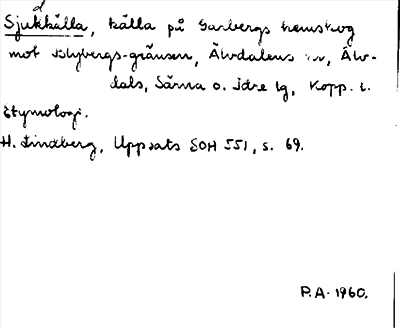 Sjukkälla, källa på Garbergs hemskog
mot Blybergs-gränsen, Älvdalens sn, Älv-
dals, Särna o. Idre tg, Kopp. l.
Etymologi.
H. Lindberg, Uppsats SOH 551, s. 69.
P.A. 1960.